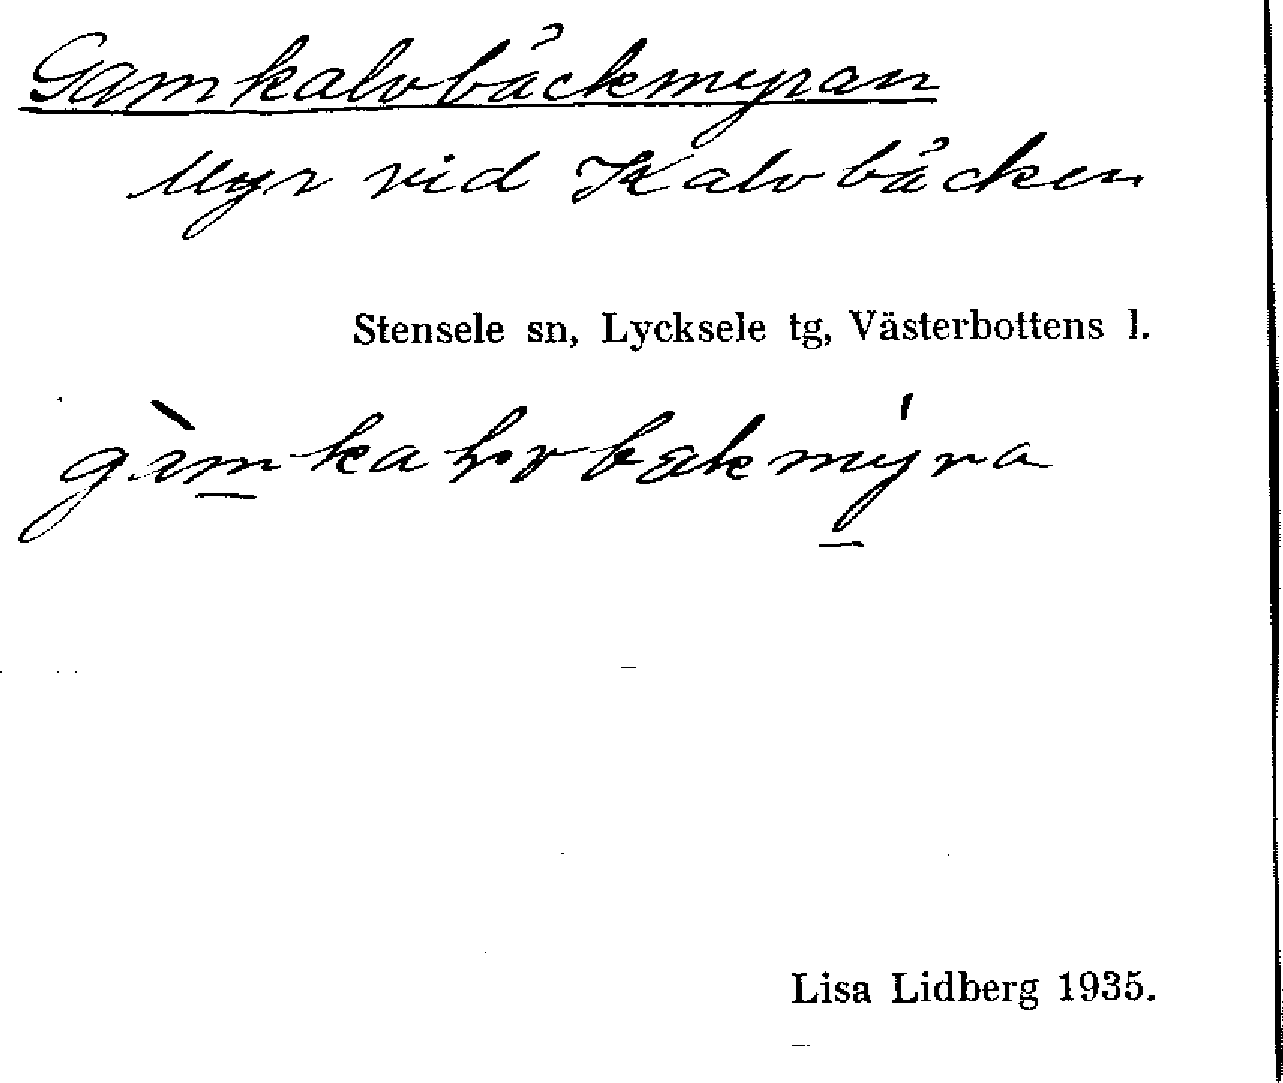 Gamkalvbäckmyran
Myr vid Kalvbäcken
Stensele sn, Lycksele tg, Västerbottens l.
Lisa Lidberg 1935.